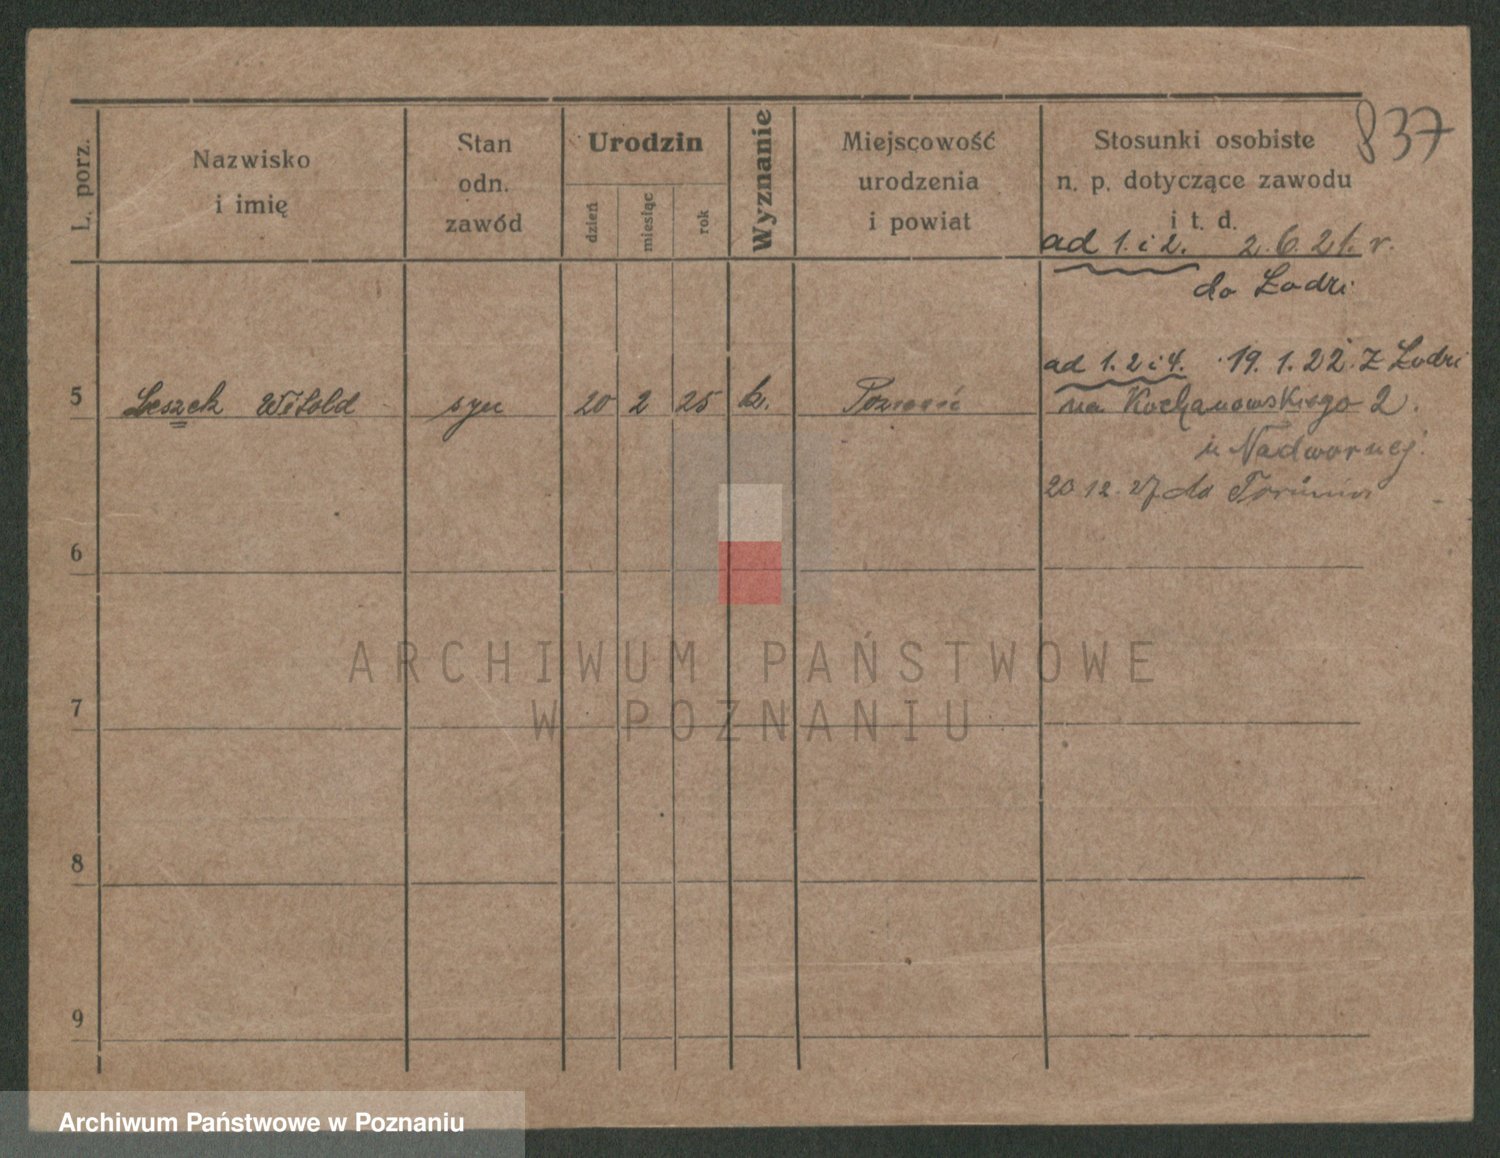 837
L. porz.
Nazwisko
i imię
Stan
odn.
zawód
Urodzin
dzień
miesiąc
rok
Wyznanie
Miejscowość
urodzenia
i powiat
Stosunki osobiste
n. p. dotyczące zawodu
i t. d.
ad 1. i 2. 2. 6. 21. r.
do Łodzi
ad 1. 2 i 4. 19. 1. 22. z Łodzi
5 Leszek Witold syn 20 2 25 k. Poznań na Kochanowskiego 2.
Nadwornej.
20 12. 27. do Torunia
6
7
8
9
ARCHIWUM PAŃSTWOWE
W POZNANIU
Archiwum Państwowe w Poznaniu